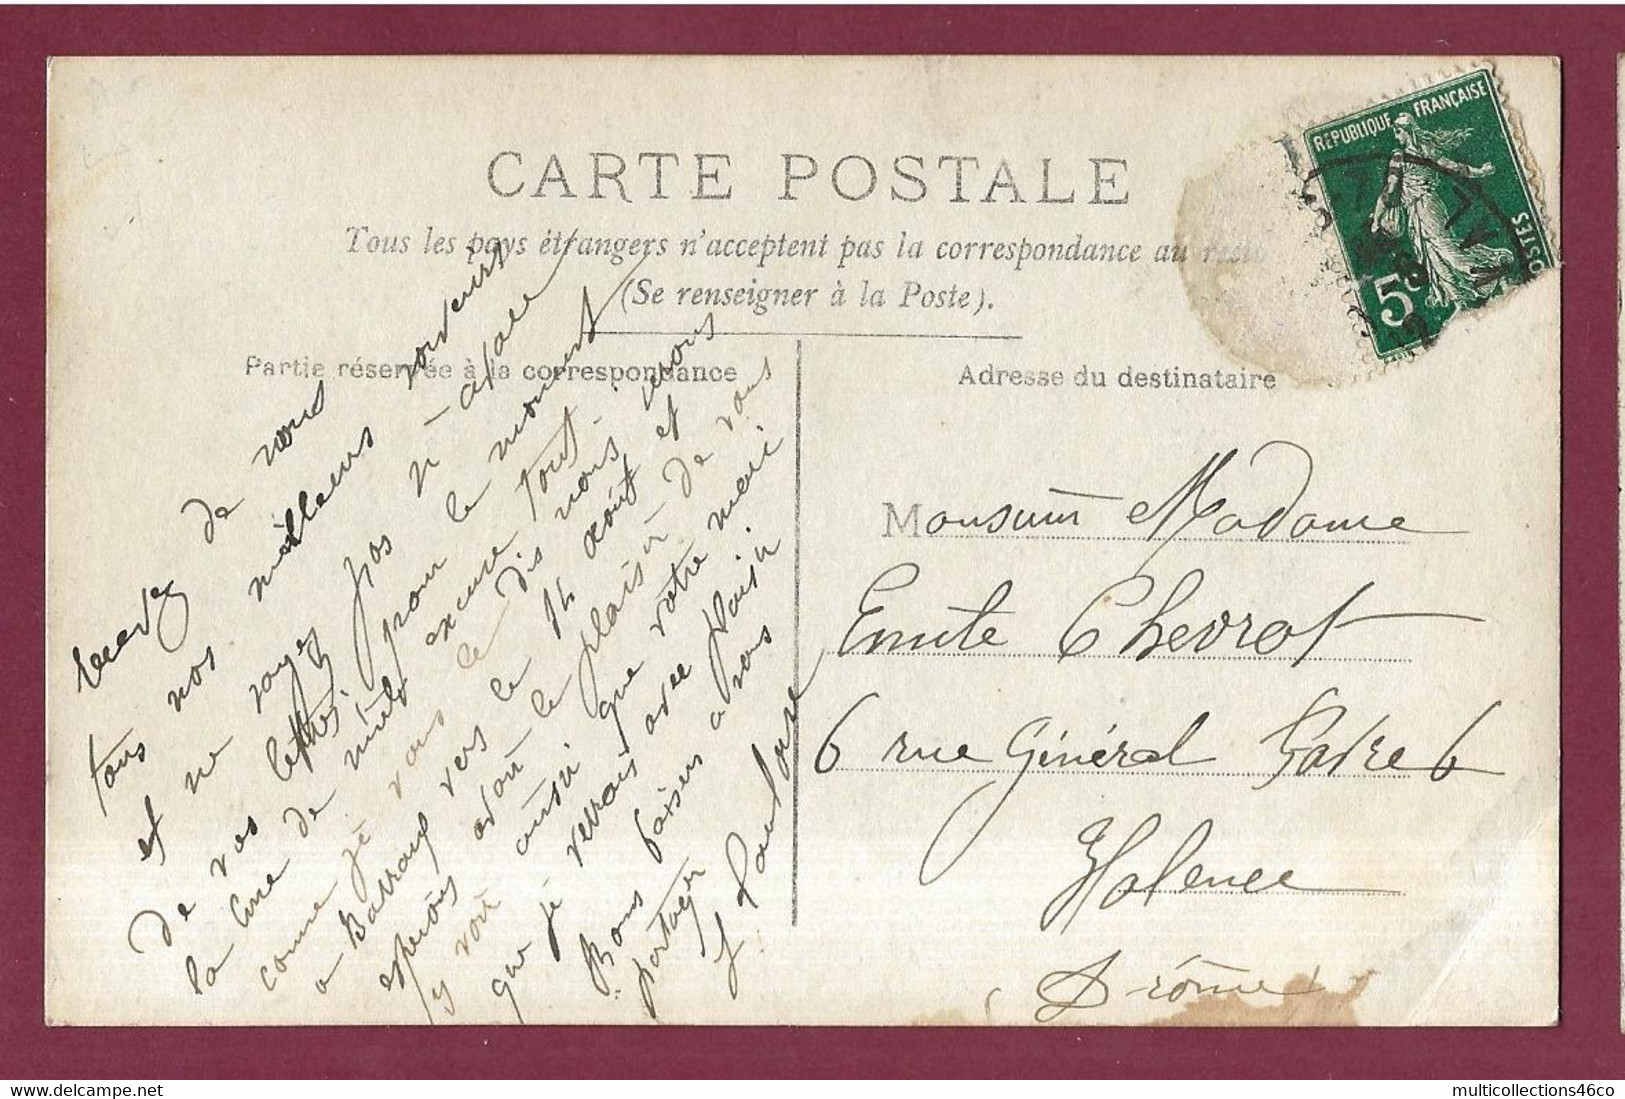 CARTE POSTALE
Tous les pays étrangers n'acceptent pas la correspondance au
(Se renseigner à la Poste).
Partie réservée à la correspondance
Adresse du destinataire
REPUBLIQUE FRANÇAISE
POSTES
5
VAL
recevez de nous
tous nos meilleurs souvenirs
et ne soyez pas
de vos pour le moment
la cure de excuse tout
comme je vous le dis nous serons
a Barraux vers le 14 août et
espérons avoir le plaisir de vous
y voir ainsi que votre mari
que je verrais avec plaisir
Bons baisers a vous
partager
Monsieur Madame
Emile Chevrot
6 rue Général Farre 6
Valence
Drôme
multicollections46co